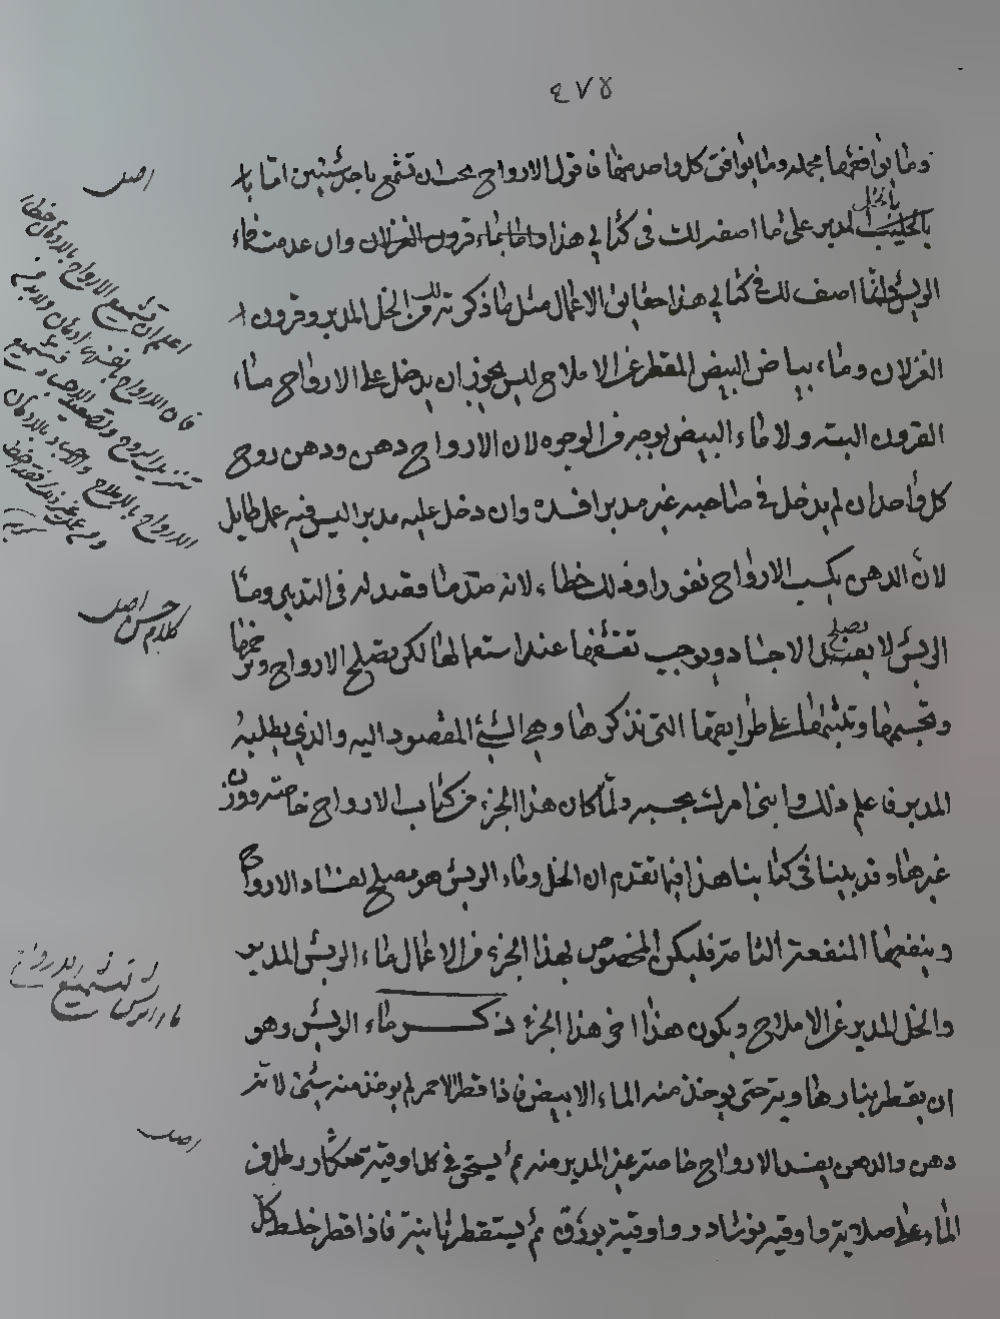 ٤٧٥
وما يوافقها مجمله وما يوافق كل واحد منها فاقول الارواح يجب ان تشمع باحد شيئين اما با
بالخل المدبر على ما اصفه لك في كتابي هذا واما بماء قرون الغزلان وان عدمت فماء
الريش وانا اصف لك في كتابي هذا حقايق الاعمال مثل ما ذكرته لك من الخل المدبر وقرون ا
الغزلان وماء بياض البيض المقطر عن الاملاح ليس يجوز ان يدخل على الارواح ماء
القرون البتة ولا ماء البيض بوجه من الوجوه لان الارواح دهن ودهن روح
كل واحد ان لم يدخل في صاحبه غير مدبر افسده وان دخل عليه مدبرا ليس فيه عمل طايل
لان الدهن يكسب الارواح نفورا وذلك خطاء لانه ضد ما قصد له في التدبير وماء
الريش لا يصلح الاجساد ويوجب تقشفها عند استعمالها لكن يصلح الارواح
وتجسمها وتلبثها على طرايقها التي نذكرها وهي الشيء المقصود اليه والذي يطلبه
المدبر فاعلم ذلك وابني امرك بحسبه ولما كان هذا الجزء من كتاب الارواح خاصة دون
غيرها وقد بينا في كتابنا هذا فيما تقدم ان الخل وماء الريش هو مصلح لفساد الارواح
وينفعها المنفعة التامة فليكن المخصوص بهذا الجزء من الاعمال ماء الريش المدبر
والخل المدبر عن الاملاح ويكون هذا اخر هذا الجزء ذكر ماء الريش وهو
ان يقطر بنار هاوية حتى يوخذ منه الماء الابيض فاذا قطر الاحمر لم يوخذ منه شيئ لانه
دهن والدهن يفسد الارواح خاصة غير المدبر منه ثم يستحق في كل اوقية رطل من
الماء على صلاية واوقيه نوشادر واوقية بورق ثم يستقطر ثانية فاذا قطر خلط كل
اصل
اعلم ان تشميع الارواح بالادهان خطا
فان الارواح بانفسها ادهان والادهان
تزيد الروح وتصعد الاجساد فتشميع
الارواح بالاملاح والاجساد بالادهان
كلام حسن اصل
ماء الريش لتشميع الارواح
اصل